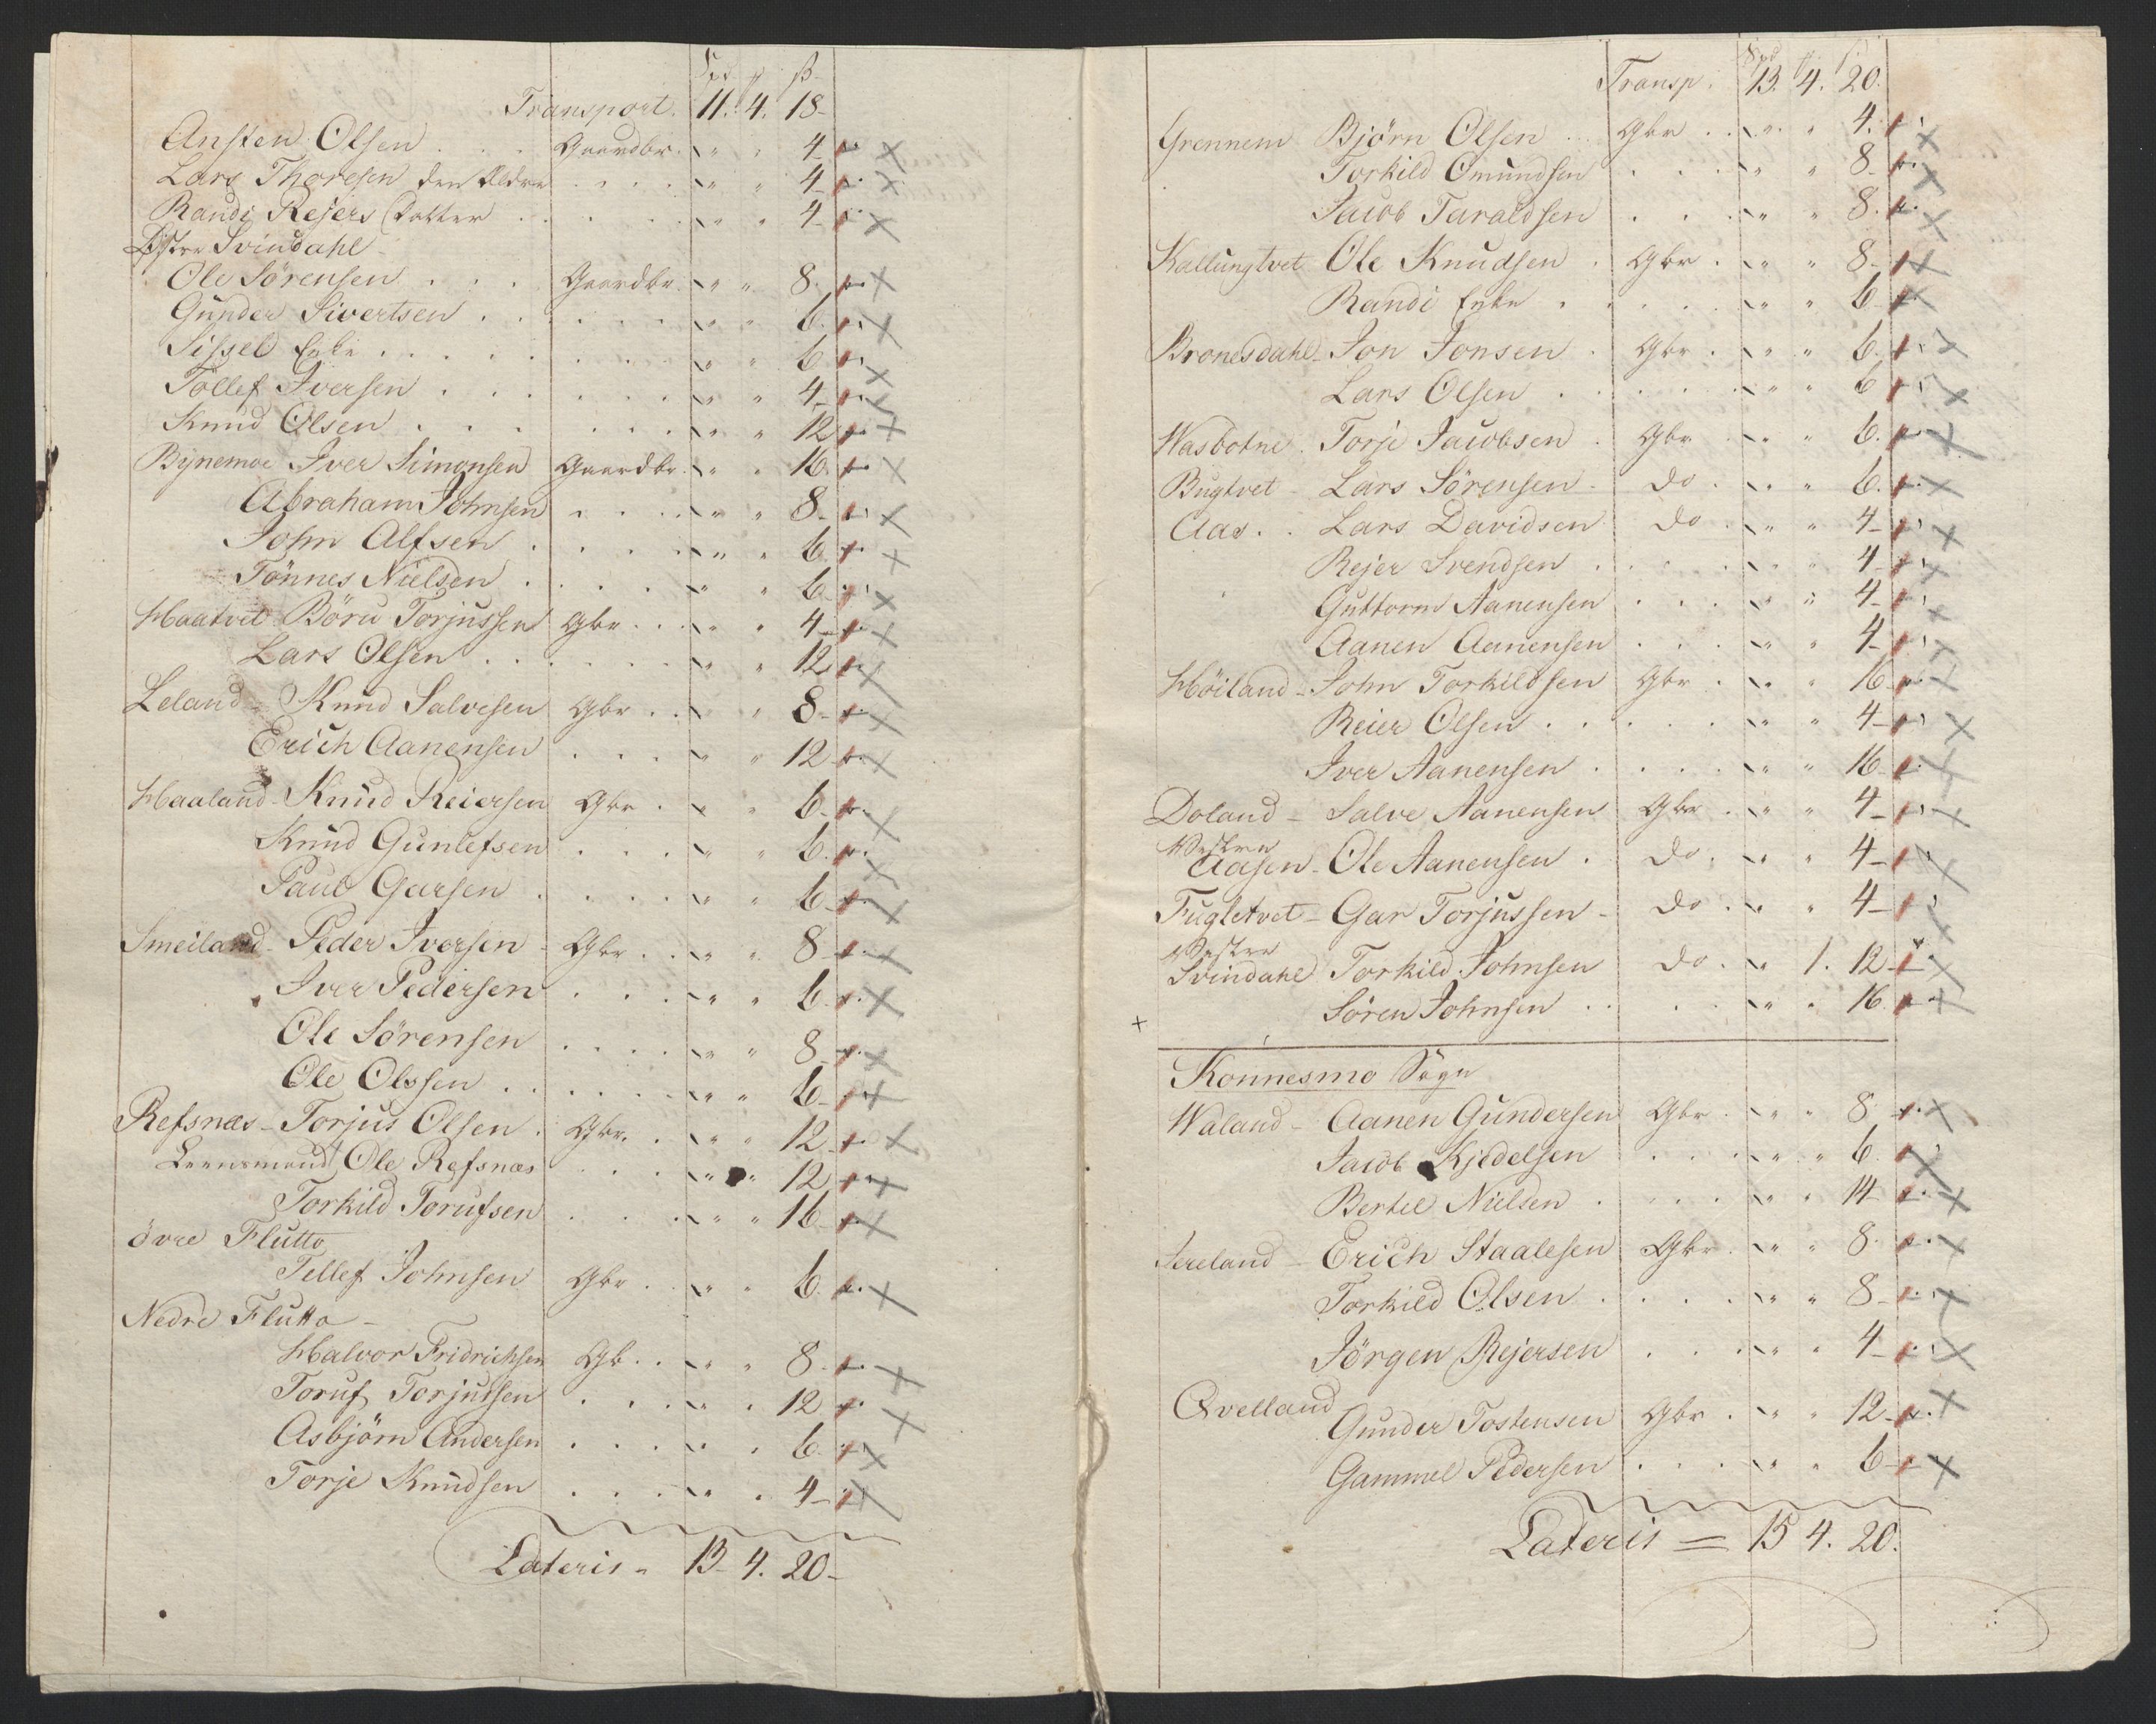 Spd # ß
Transport. 11. 4. 18-
Ansten Olsen . . . Gaardbr. " " 4-
Lars Thoresen den Ældre . . . " " 4-
Randi Rejers Datter . . . " " 4-
Østre Svindahl -
Ole Sörensen . . . Gaardbr. " " 8.
Gunder Sivertsen . . . " " 6.
Sissel Enke . . . " " 6.
Tollef Iversen . . . " " 4-
Knud Olsen . . . " " 12
Bynemoe Iver Simonsen Gaardbr. " " 16.
Abraham Johnsen . . . " " 8-
John Alfsen . . . " " 6
Tönnes Nielsen . . . " " 6
Haatvet Böru Torjussen Gbr. . " " 4-
Lars Olsen . . . " " 12
Leland - Knud Salvesen Gbr . . " " 8-
Erich Aanensen . . . " " 12
Haaland - Knud Reiersen Gbr . " " 6-
Knud Gunlefsen . . . " " 6.
Paul Garsen . . . " " 6-
Smeiland - Peder Iversen - Gbr . . " " 8
Iver Pedersen . . . " " 6.
Ole Sörensen . . . " " 8
Ole Olssen . . . " " 6-
Refsnæs - Torjus Olsen . Gbr. . " " 12
Leensmand Ole Refsnæs . . . " " 12
Torkild Torufsen . . . " " 16
övre Flutto
Tellef Johnsen Gbr . . " " 6
Nedre Flutto -
Halvor Fridrichsen Gb. . . " " 8-
Toruf Torjussen . . . " " 12
Asbjörn Andersen . . . " " 6-
Torje Knudsen . . . " " 4-
Lateris - 13- 4. 20-
Spd # ß
Transp. 13. 4. 20.
Grennem Björn Olsen . . Gbr . . " " 4.
Torkild Omundsen . . . " " 8-
Jacob Taraldsen . . . " " 8.
Kallungtvet Ole Knudsen . Gbr . " " 8-
Randi Enke . . . " " 6
Bronesdahl - Jon Jonsen . Gbr . " " 6.
Lars Olsen . . . " " 6
Wasbotne . Torje Jacobsen . Gbr . " " 6.
Bugtvet - Lars Sörensen - Do . " " 6.
Aas . . Lars Davidsen Do . " " 4-
Rejer Svendsen . . . " " 4-
Guttorm Aanensen . . . " " 4-
Aanen Aanensen . . . " " 4-
Höiland - John Torkildsen Gbr . " " 16-
Reier Olsen . . . " " 4-
Iver Aanensen . . . " " 16-
Doland - Salve Aanensen Gbr . " " 4-
Westre
Aasen - Ole Aanensen . Do . " " 4-
Fugletvet - Gar Torjussen - Do . " " 4-
Westre
Svindahl Torkild Johnsen Do . " 1. 12
Sören Johnsen . . . " " 16
+
Konnesmo Sogn
Waland - Aanen Gundersen Gbr . " " 8
Jacob Kjedelsen . . . " " 6.
Bertel Nielsen . . . " " 14
Sereland - Erich Staalesen Gbr . " " 8.
Torkild Olsen . . . " " 8-
Jörgen Rejersen . . . " " 4-
Qvelland
Gunder Tostensen Gbr . " " 12-
Gammel Pedersen . . . " " 6-
Lateris = 15 4. 20.